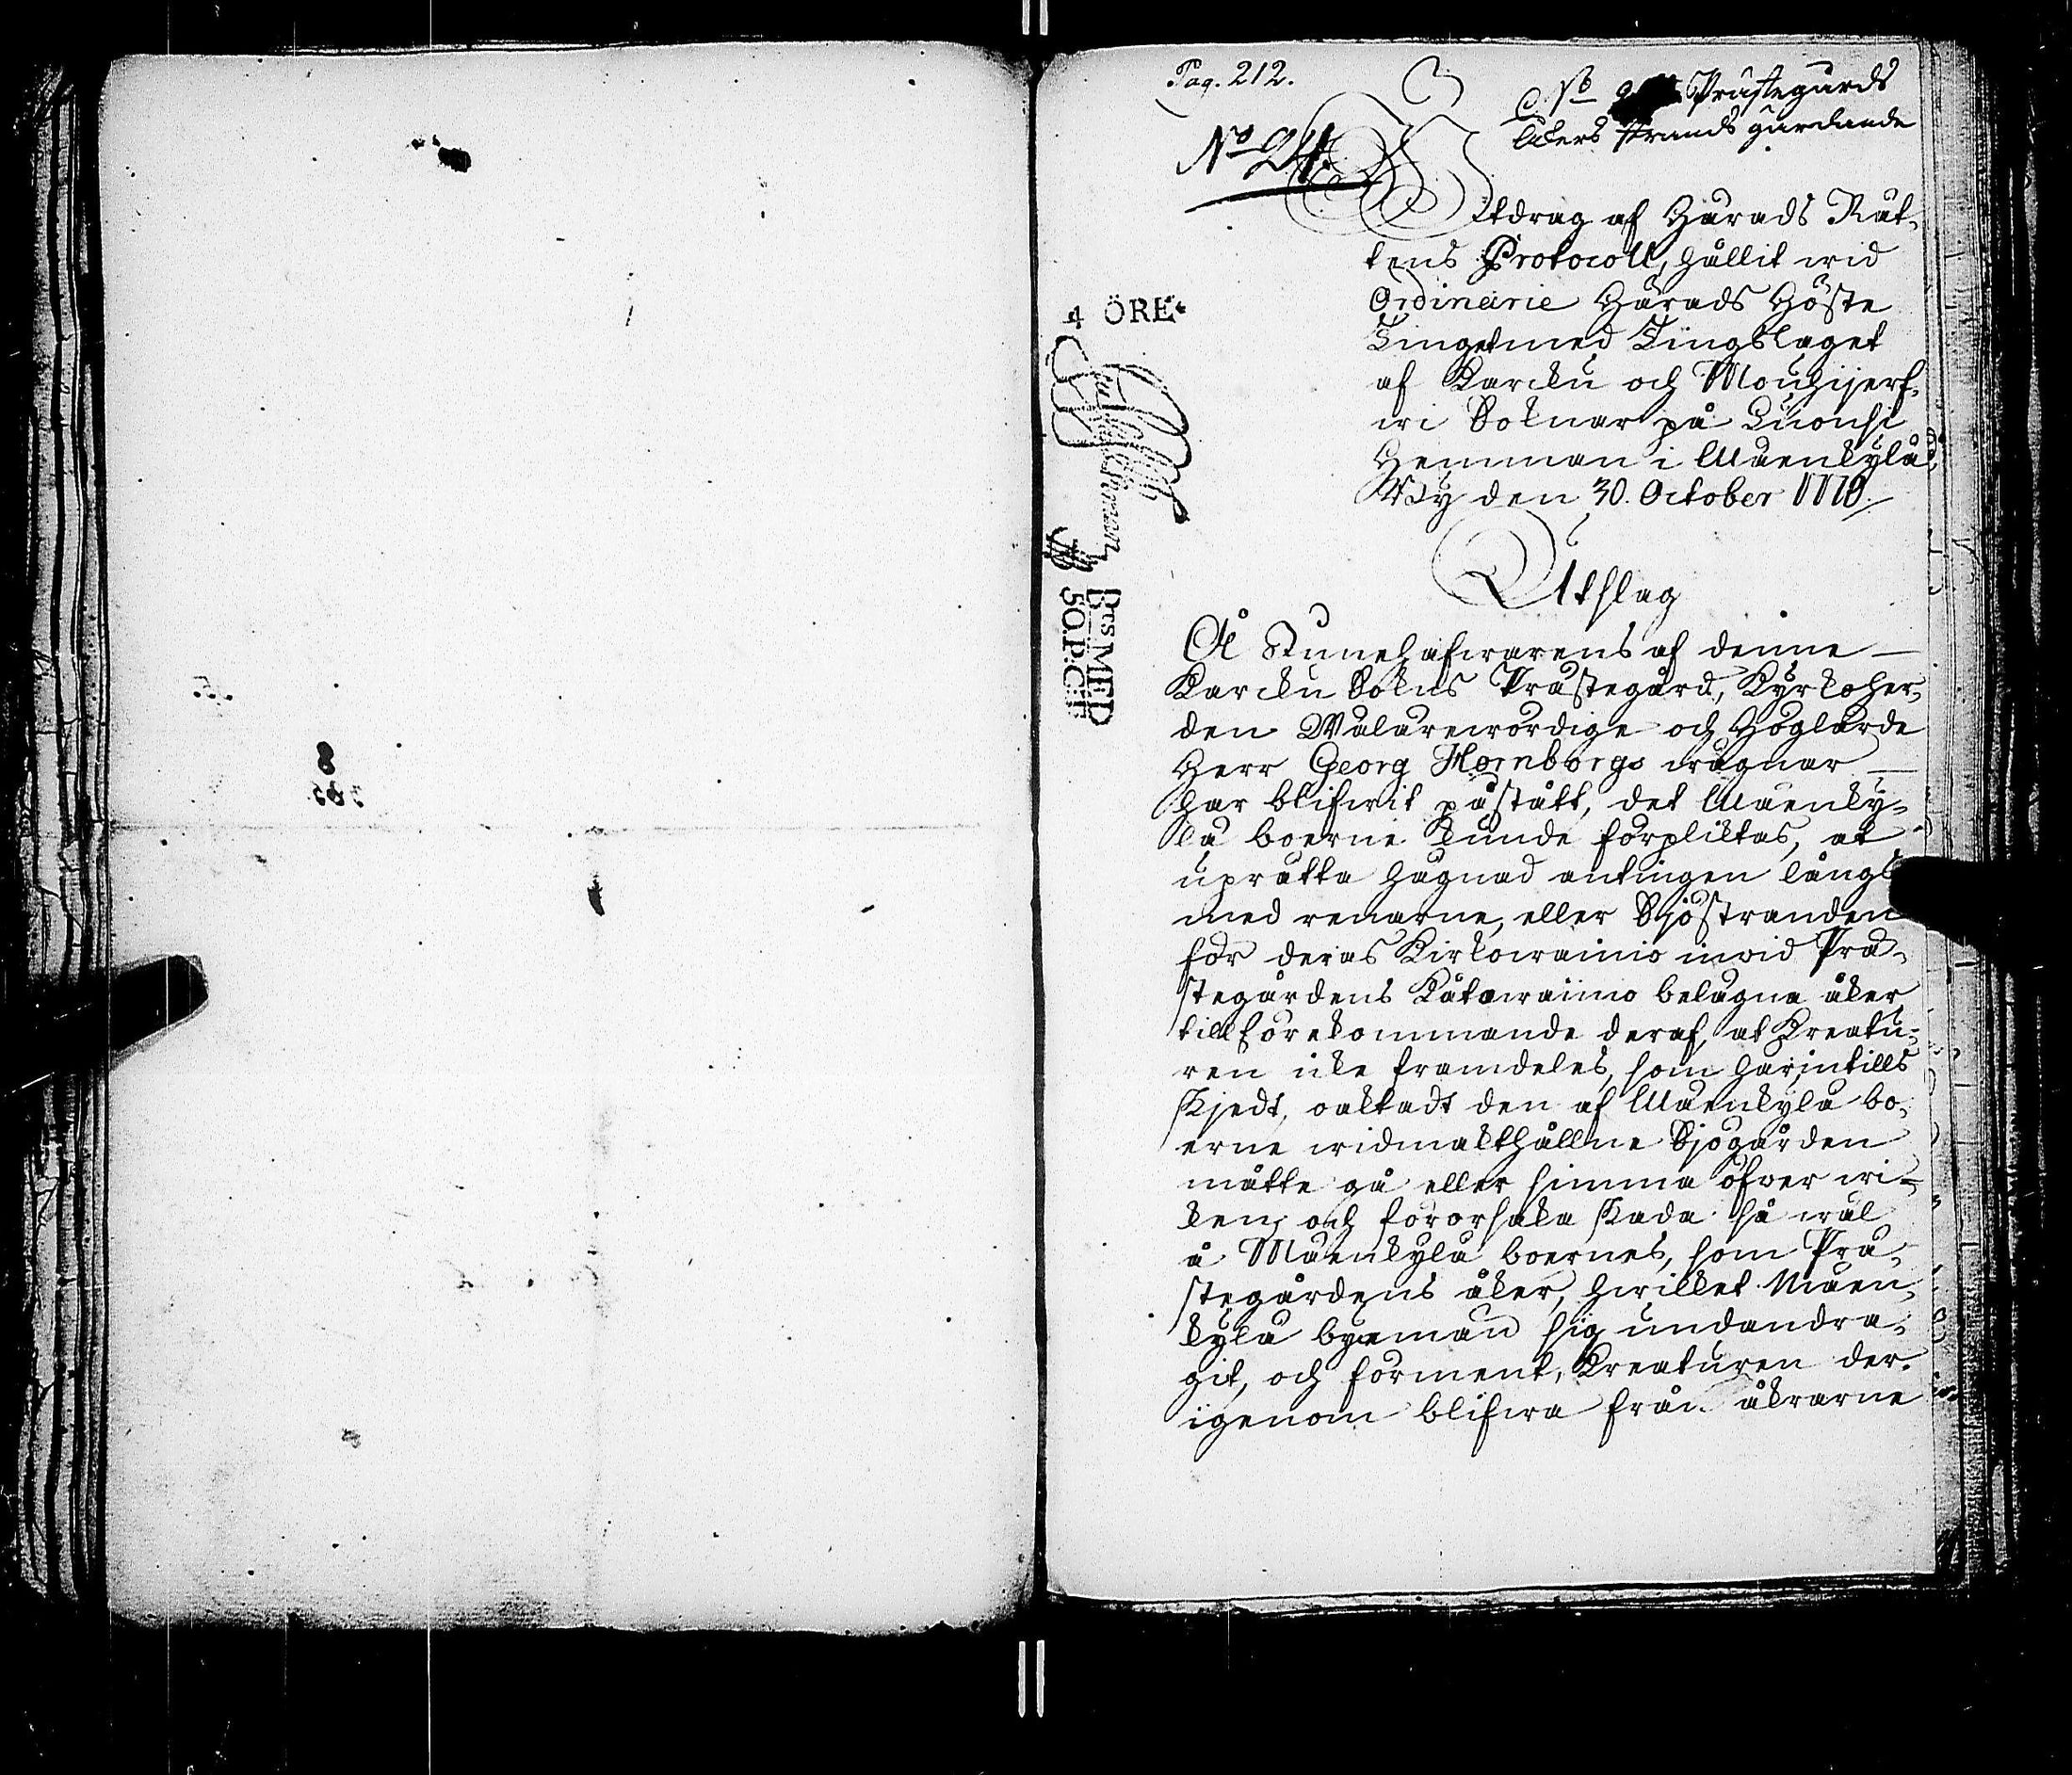 Pag. 212.
Prästegårds
åkers strands gärdande
No 24.
Utdrag af Härads Rät-
tens Protocoll, hållit wid
Ordinarie Härads Höste
Tinget med Tingslaget
af Karcku och Mouhijerf-
wi Soknar på Knonsi
Hemman i Muenkylä
By den 30. October 1770.
4 ÖRE
SO.P.C
Utslag
Å Innehafwarens af denne
Karcku Sokns Prästegård, Kyrkoher-
den Wälärewördige och Höglärde
Herr Georg Hornborgs wägnar
har blifwit påstått, det Muenky-
lä boerne kunde förpliktas, at
uprätta hägnad antingen längs
med renarne, eller Sjöstranden
för deras Kirkowainio inwid Prä-
stegårdens Kåtawainio belägna åker
till förekommande deraf, at Kreatu-
ren icke framdeles, som härintills
skjedt, oaktadt den af Muenkylä bo-
erne widmakthållne Sjögården
måtte gå eller simma öfwer wi-
ken, och förorsaka skada så wäl
å Muenkylä boernes, som Prä-
stegårdens åker, hwilket Muen-
kylä byemän sig undandra-
git, och förment, Kreaturen der-
igenom blifwa från åkrarne